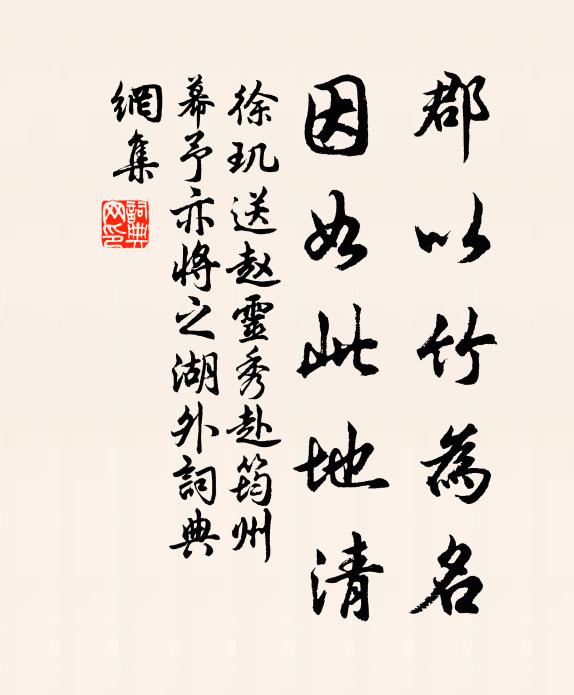 郡以竹為名
因如此地清
徐玑送赵靈秀赴筠州
幕予亦將之湖外詞典
網集
詞典
网印